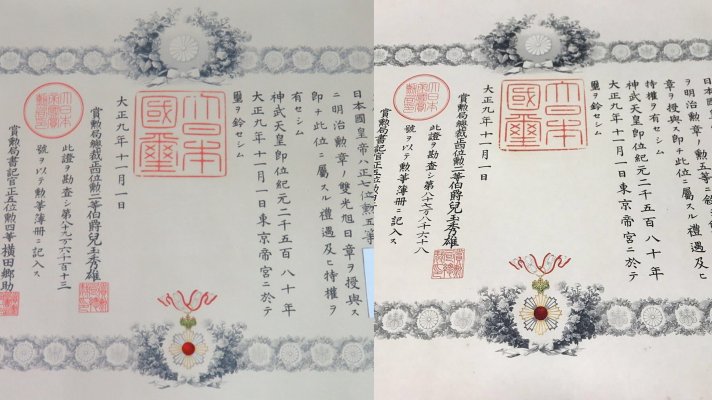 日本國皇帝ハ正七位勲五等
ニ明治勲章ノ雙光旭日章ヲ授與ス
即チ此位ニ屬スル禮遇及ヒ特權ヲ
有セシム
神武天皇即位紀元二千五百八十年
大正九年十一月一日東京帝宮ニ於テ
璽ヲ鈐セシム
大日本國璽
大正九年十一月一日
賞勲局總裁正四位勲二等伯爵兒玉秀雄
此證ヲ勘査シ第八十九万六千百十三
號ヲ以テ勲等簿册ニ記入ス
賞勲局書記官正五位勲四等横田郷助
日本國皇
ヲ明治勲章ノ勲五等ニ
章ヲ授與ス即チ此位ニ屬スル禮遇及ヒ
特權ヲ有セシム
神武天皇即位紀元二千五百八十年
大正九年十一月一日東京帝宮ニ於テ
璽ヲ鈐セシム
大日本國璽
大正九年十一月一
賞勲局總裁正四位勲二等伯爵兒玉秀雄
此證ヲ勘査シ第八十七万八千六十八
號ヲ以テ勲等簿册ニ記入ス